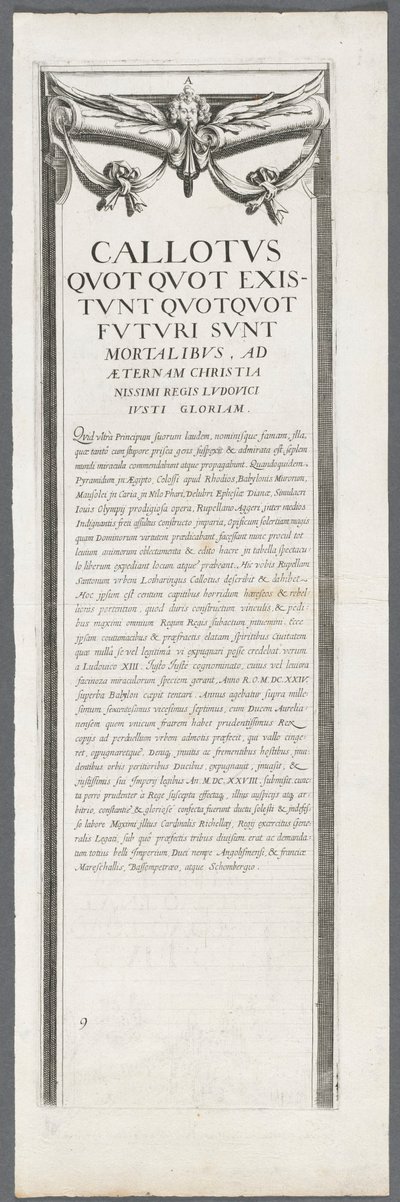 A
CALLOTVS
QVOT QVOT EXIS-
TVNT QVOTQVOT
FVTVRI SVNT
MORTALIBVS, AD
ÆTERNAM CHRISTIA
NISSIMI REGIS LVDOVICI
IVSTI GLORIAM.
Quid vltrà Principum suorum laudem, nominisque famam, illa,
quæ tantò cum stupore prisca gens suspexit & admirata est septem
mundi miracula commendabunt atque propagabunt. Quandoquidem
Pyramidum in Ægipto, Colossi apud Rhodios, Babylonis Murorum,
Mausolei in Caria, in Nilo Phari, Delubri Ephesiæ Dianæ, Simulacri
Iouis Olympij prodigiosa opera, Rupellano Aggeri, inter medios
Indignantis freti assultus constructo, imparia, Opificum solertiam magis
quam Dominorum virtutem prædicabant, facessant nunc procul tot
leuium animorum oblectamenta & edito hacce in tabella spectacu-
lo liberum expediant locum atque præbeant. Hic vobis Rupellam
Santonum vrbem Lotharingus Callotus describit & exhibet.
Hoc ipsum est centum capitibus horridum hæreseos & rebel-
lionis portentum, quod duris constructum vinculis, & pedi-
bus maximi omnium Regum Regis subactum intuemini. Ecce
ipsam contumacibus & præfractis elatam, spiritibus Ciuitatem
quæ nulla se vel legitimâ vi expugnari posse credebat verum
a Ludouico XIII. Iusto Iustè cognominato, cuius vel leuiora
facinora miraculorum speciem gerant, Anno R.O.M.DC.XXIV.
superba Babylon cœpit tentari. Annus agebatur supra mille-
simum sexcentesimus vicesimus septimus, cum Ducem Aurelia-
nensem quem vnicum fratrem habet prudentissimus Rex
copijs ad perduellium vrbem admotis præfecit, qui vallo cinge-
ret, oppugnaretque. Denuq inuitis ac frementibus hostibus, inui-
dentibus orbis peritioribus Ducibus, expugnauit, inuasit, &
iustissimis sui Imperij legibus An. M.DC.XXVIII. submisit. cunc-
ta porro prudenter à Rege suscepta effectaq, illius auspicijs atq ar-
bitrio, constanter & gloriosè confecta fuerunt ductu solesti & indefes-
so labore Maximi illius Cardinalis Richellæi, Regij exercitus Gene-
ralis Legati, sub quo præfectis tribus diuisum, erat ac demanda-
tum totius belli Imperium, Duci nempe Angolismensi, & franciæ
Mareschallis, Bassompetræo, atque Schombergio.
9